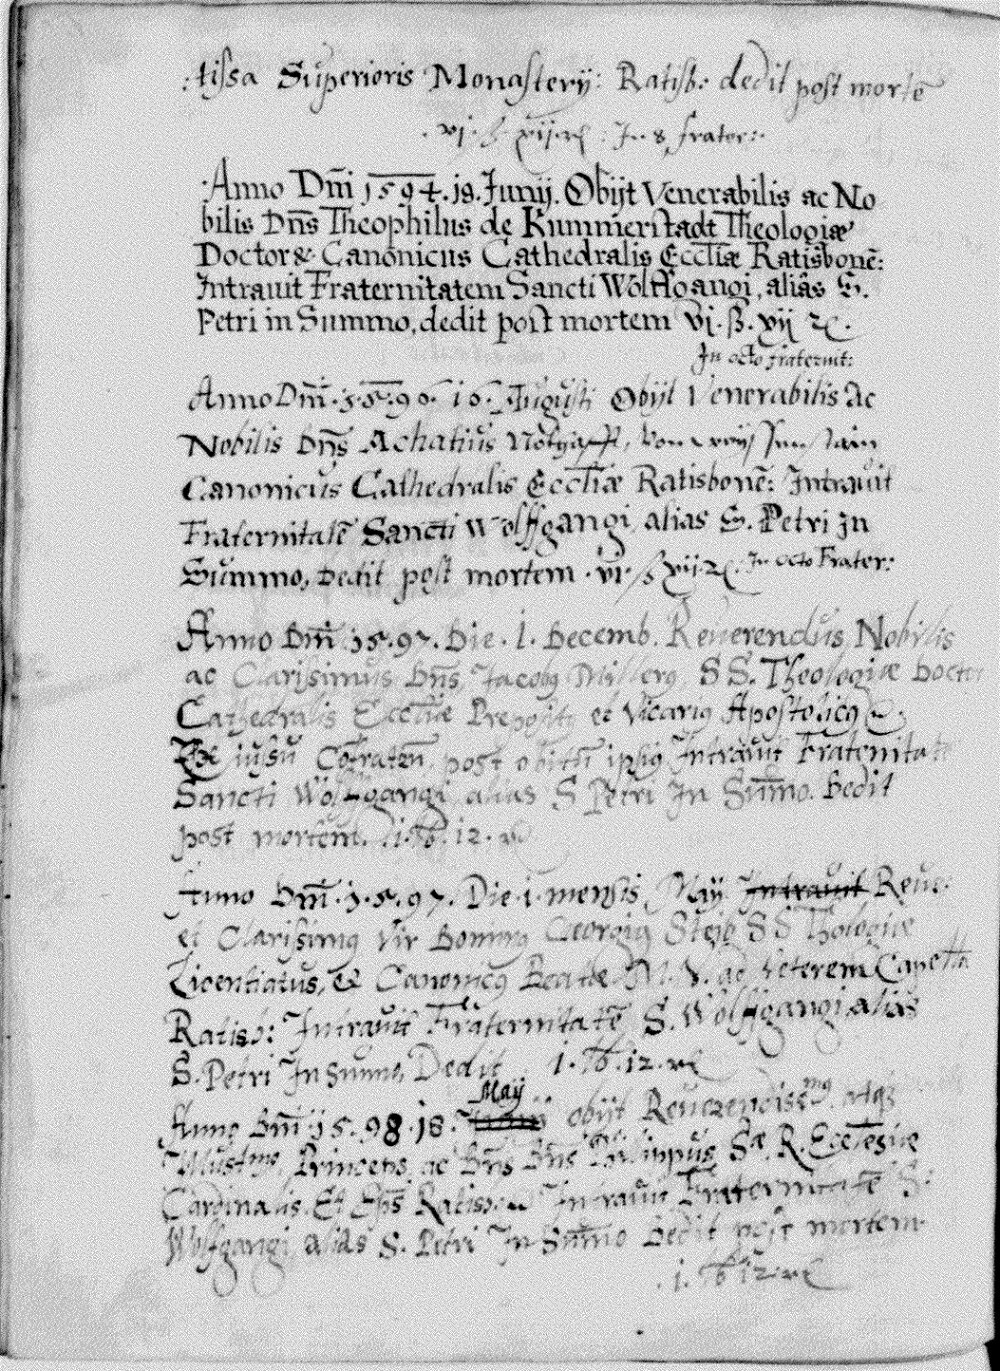 tissa Superioris Monasterij: Ratisb: dedit post mortē
vi. ß xij. ₰ : In 8 frater:
Anno Dn̄i 1594. 19. Junij. Obijt Venerabilis ac No
bilis Dn̄s Theophilus de Kummerstadt Theologiæ
Doctor & Canonicus Cathedralis Eccl̄iæ Ratisbonē:
Intrauit Fraternitatem Sancti Wolffgangi, aliàs S.
Petri in Summo, dedit post mortem vi. ß. vij ₰.
In octo fraternit:
Anno Dn̄i. 1.5.96. 16. Augusti Obijt Venerabilis Ac
Nobilis Dn̄s Achatius
Canonicus Cathedralis Eccl̄iæ Ratisbonē: Intrauit
Fraternitatē Sancti Wolffgangi, alias S. Petri Jn
Summo, Dedit post mortem. vi. ß xij. ₰. In octo Frater:
Anno Dn̄i 15.97. Die. 1. Decemb. Reuerendus, Nobilis
ac Clarissimus Dn̄s Jacobꝯ Millerꝯ, SS. Theologiæ Doctor
Cathedralis Eccl̄iæ Prepositꝯ et Vicariꝯ Apostolicꝯ
iussu post obitū ipsiꝯ Intrauit Fraternitatē
Sancti Wolffgangi alias S Petri Jn Sum̄o. Dedit
post mortem. 1. ℔. 12. ₰
Anno Dn̄i. 1.5.97. Die. 1. mensis May Intrauit Reue:
et Clarissimꝯ Vir Dominꝯ Georgiꝯ SS Thologiæ
Licentiatus, & Canonicꝯ Beatæ M. V. ad Veterem Capellā
Ratisb: Intrauit Fraternitatē S. Wolffgangi, alias
S. Petri Jn Sum̄o, Dedit 1. ℔. 12. ₰
May
Anno Dn̄i 15.98. 18. obijt Reuerendissᵐꝯ. atqꝫ
Illustᵐꝯ, Princeps, ac Dn̄s Dn̄s Philippus Sæ. R. Ecclesiæ
Cardinalis. Et Ep̄s Ratisb: Intrauit Fraternitatē S:
Wolfgangi alias S. Petri Jn Sum̄o Dedit post mortem
1. ℔ 12. ₰